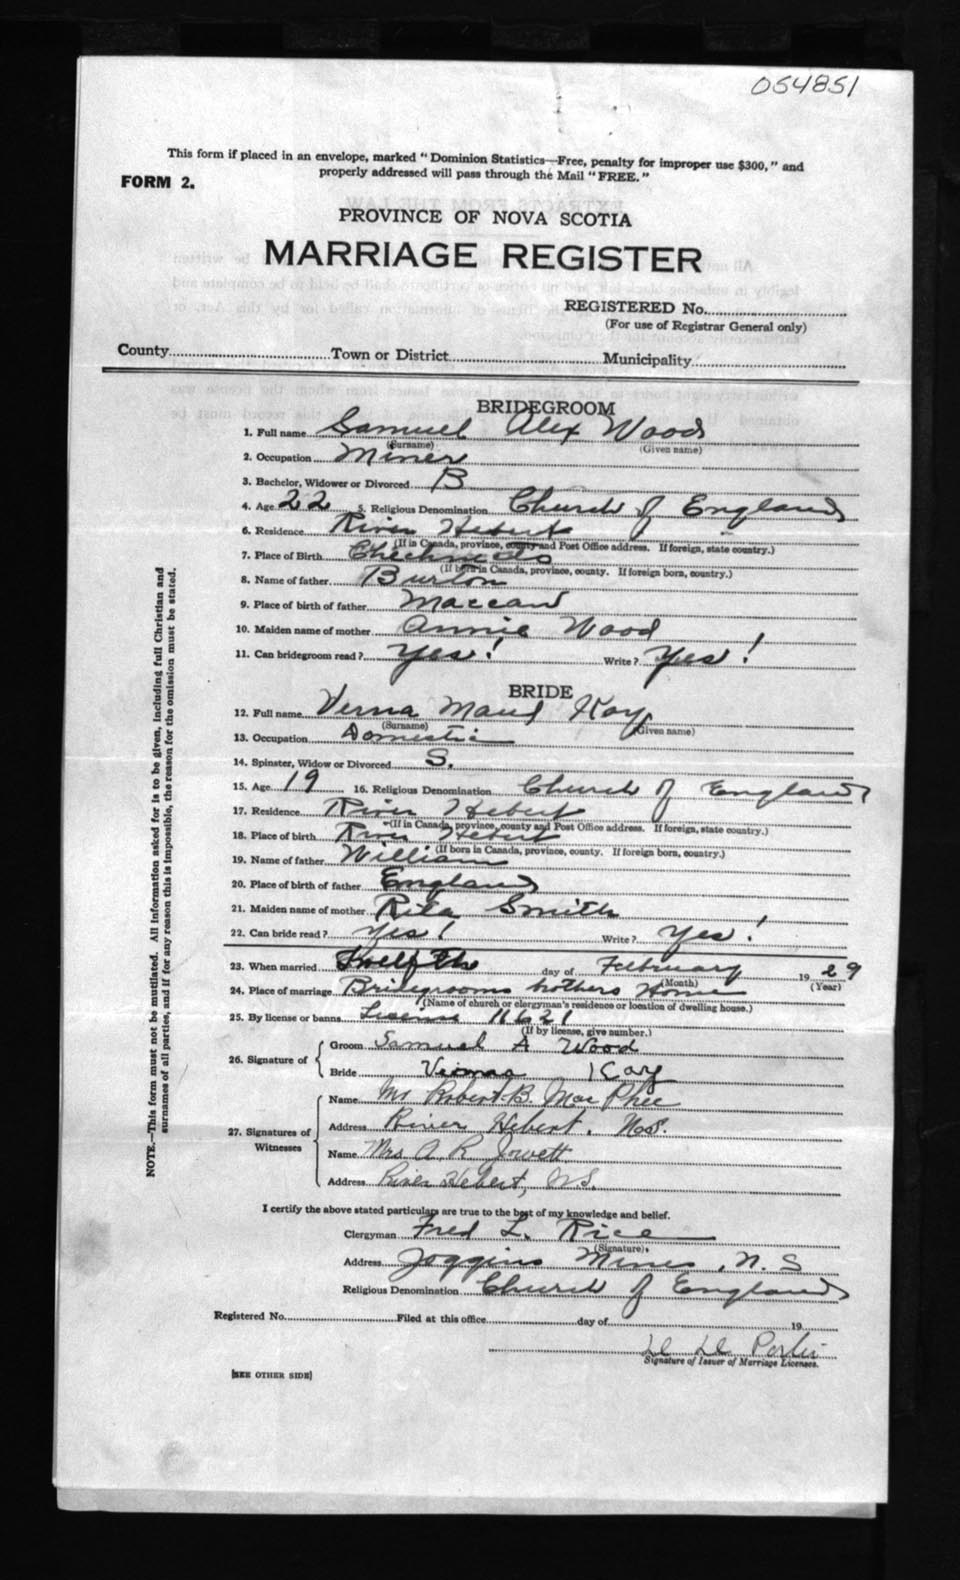 054851
This form if placed in an envelope, marked "Dominion Statistics—Free, penalty for improper use $300," and
properly addressed will pass through the Mail "FREE."
FORM 2.
PROVINCE OF NOVA SCOTIA
MARRIAGE REGISTER
REGISTERED No.
(For use of Registrar General only)
County Town or District Municipality
BRIDEGROOM
1. Full name Samuel Alex Wood
(Surname) (Given name)
2. Occupation Miner
3. Bachelor, Widower or Divorced B
4. Age 22 5. Religious Denomination Church of England
6. Residence River Hebert
(If in Canada, province, county and Post Office address. If foreign, state country.)
7. Place of Birth
(If born in Canada, province, county. If foreign born, country.)
8. Name of father Burton
9. Place of birth of father Maccan
10. Maiden name of mother Annie Wood
11. Can bridegroom read? Yes! Write? Yes!
BRIDE
12. Full name Verna Maud Kay
(Surname) (Given name)
13. Occupation Domestic
14. Spinster, Widow or Divorced S.
15. Age 19 16. Religious Denomination Church of England
17. Residence River Hebert
(If in Canada, province, county and Post Office address. If foreign, state country.)
18. Place of birth River Hebert
(If born in Canada, province, county. If foreign born, country.)
19. Name of father William
20. Place of birth of father England
21. Maiden name of mother Rita Smith
22. Can bride read? Yes! Write? Yes!
23. When married Twelfth day of February 1929
(Month) (Year)
24. Place of marriage Bridegrooms brothers Home
(Name of church or clergyman's residence or location of dwelling house.)
25. By license or banns License 11621
(If by license, give number.)
26. Signature of Groom Samuel A Wood
Bride Vernna Kay
27. Signatures of Witnesses Name Mr Robert B. MacPhee
Address River Hebert, N.S.
Name Mrs A. R. Jowett
Address River Hebert, N.S.
I certify the above stated particulars are true to the best of my knowledge and belief.
Clergyman Fred L. Rice
(Signature).
Address Joggins Mines, N.S
Religious Denomination Church of England
Registered No. Filed at this office day of 19
Signature of Issuer of Marriage Licenses.
[SEE OTHER SIDE]
NOTE.—This form must not be mutilated. All information asked for is to be given, including full Christian and
surnames of all parties, and if for any reason this is impossible, the reason for the omission must be stated.